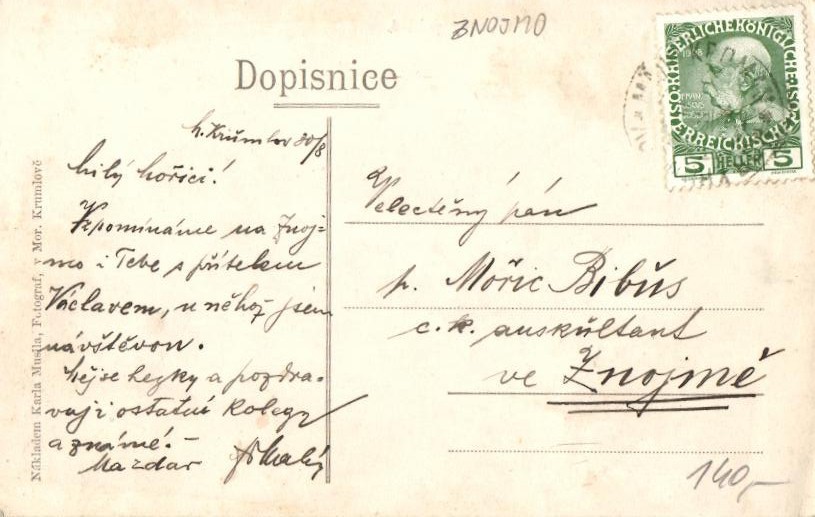 ZNOJMO
Dopisnice
KAISERLICHE KÖNIGLICHE
ÖSTERREICHISCHE
5 HELLER 5
M. Krumlov 30/8
Milý Mořici!
Vzpomínáme na Znoj-
mo i Tebe s přítelem
Václavem, u něhož jsem
návštěvou.
Měj se hezky a pozdra-
vuj i ostatní kolegy
a známé.-
Nazdar
Velectěný pán
p. Mořic Bibus
c. k. auskultant
ve Znojmě
140,-
Nákladem Karla Musila, Fotograf, v Mor. Krumlově